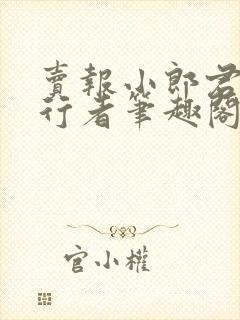 賣報小郎君
行者筆趣閣
官小權